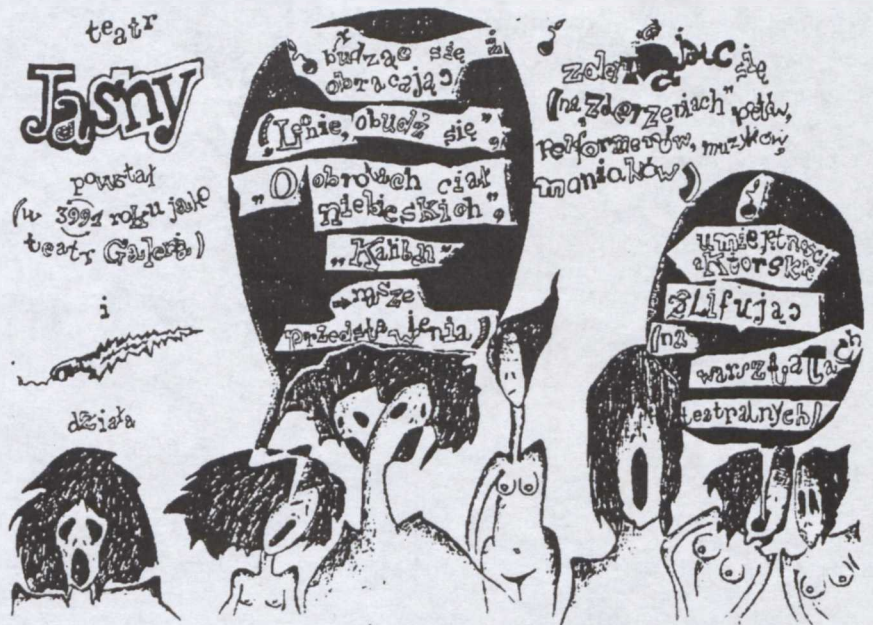 teatr
Jasny
powstał
(w 3991 roku jako
teatr Galeria)
i
działa
budząc się i
obracając
(„Lnie, obudź się”,
„O obrotach ciał
niebieskich”,
„Kaliban”
nasze
przedstawienia)
zderzając się
(na „Zderzeniach” poetów,
performerów, muzyków,
maniaków)
umiejętności
aktorskie
szlifując
(na
warsztatach
teatralnych)